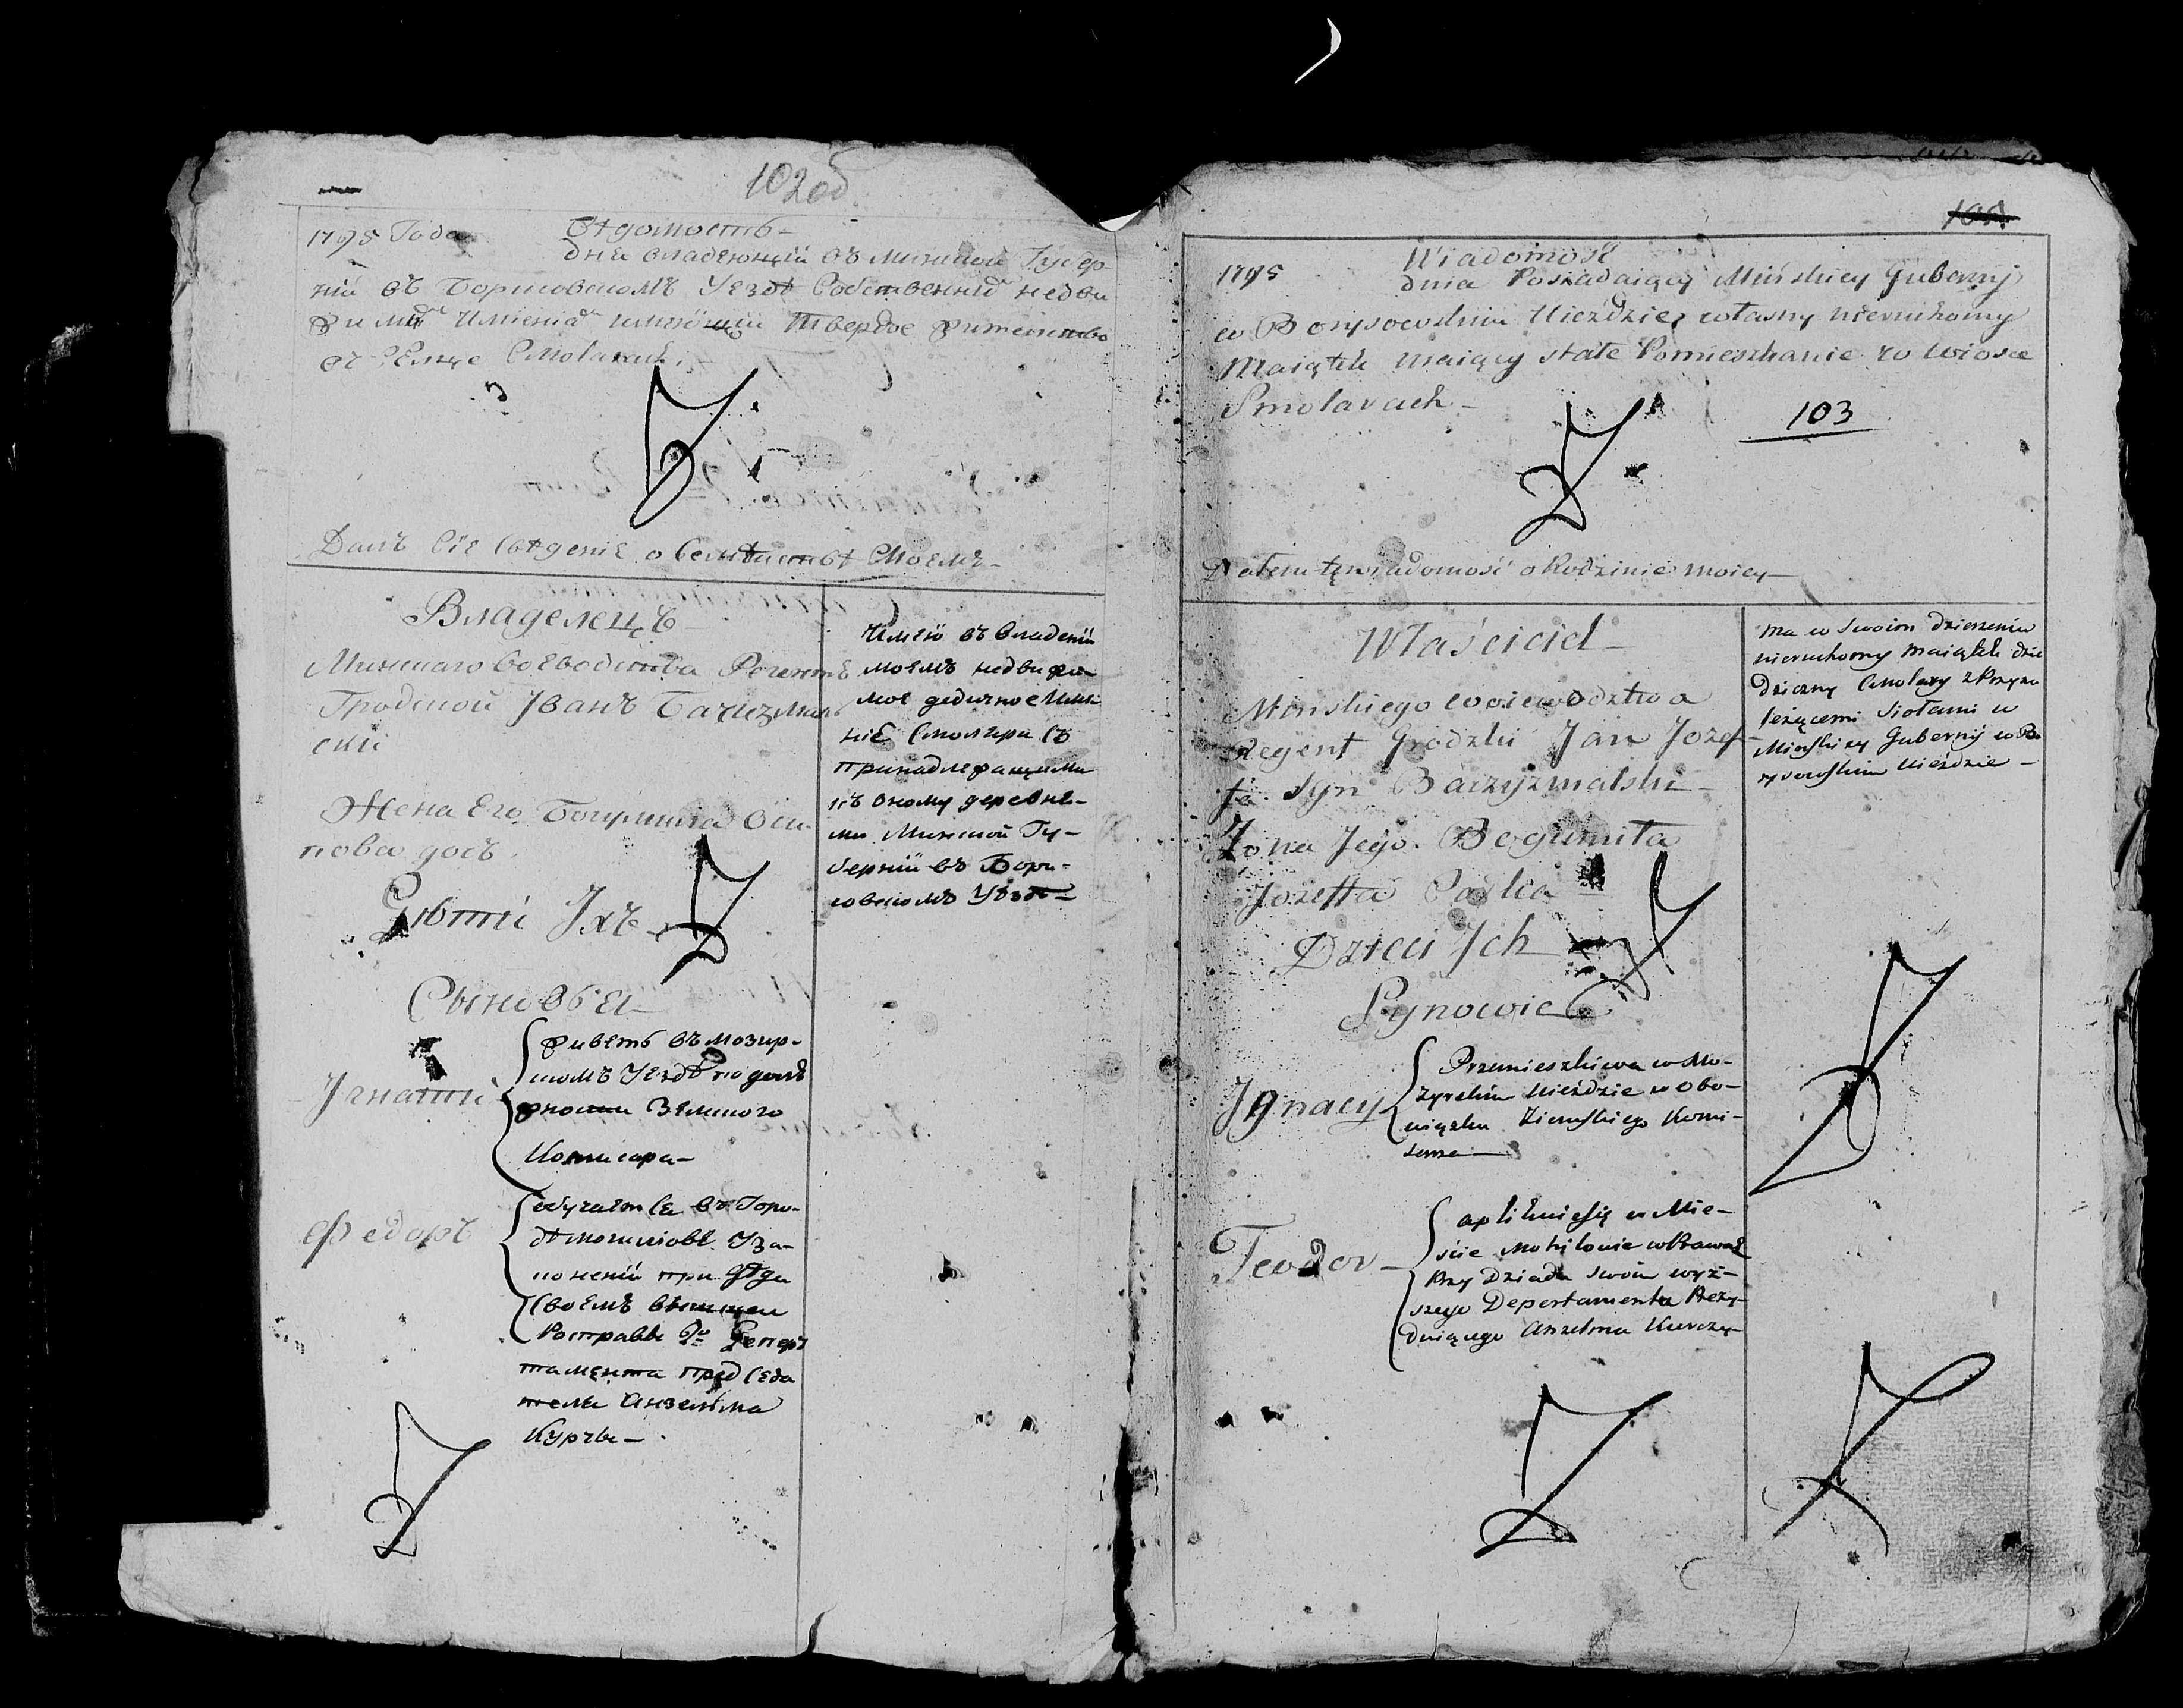 102об
1795 Года Вѣдомость
дня владеющій въ Минской Губер-
ніи въ Борисовскомъ Уезде Собственныя недви
жимыя Имѣнія имеющій Твердое жительство
въ Селце Смоларахъ
Далъ Сіе Сведеніе о Семействе Моемъ
Владелецъ
Минскаго Воеводства Регентъ
Гродской Іванъ Бачизмал
ски
Жена Его Богумила Оси
пова дочь
Дѣти Іхъ
Сыновья
Ігнатій
живетъ въ мозир-
скомъ Уезде по долж
жности Земского
Комисара
Федоръ
обучается въ Горо-
де могилове Уза-
конений при Деди
своемъ вышшей
Росправы 2го Депер
тамента пред седа
теля Анзельма
Курчы
Имею въ владении
моемъ недвижи-
мое дедичное Име
ние Смоляри съ
принадлежащими
къ оному деревня-
ми Минской Гу-
берніи въ Бори-
совскомъ Уезде
1795 Wiadomość
dnia Posiadaiący Mińskiey Guberny
w Borysowskim Uieździe, własny nieruchomy
Maiątek maiący stałe Pomieszkanie w wiosce
Smolarach
103
Dałem tę wiadomość o Rodzinie moiey
Właściciel
Mińskiego wojewodztwa
Regent Grodzki Jan Jozef-
fa Syn Baczyzmalski
Żona Jego Bogumiła
Jozeffa Corka
Dzieci Jch
Synowie
Jgnacy
Przemieszkiwa w Mo-
zyrskim Uieździe w Obo-
wiązku Ziemskiego Komi-
sarza
Teodor
aplikuie się w Mie-
ście Mohilowie w Prawach
Przy Dziadu swoim wyż-
szego Departamentu Prezy-
duiącego Anzelma Kurczy
Ma w swoim dzierzeniu
nieruchomy maiątek dzie
dziczny Smolary z Przyna
leżącemi Siołami w
Mińskiey Guberny w Bo
rysowskim Uieździe